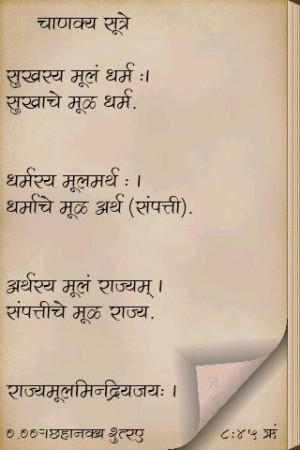 चाणक्य सूत्रे
सुखस्य मूलं धर्म :।
सुखाचे मूळ धर्म.
धर्मस्य मूलमर्थ : ।
धर्माचे मूळ अर्थ (संपत्ती).
अर्थस्य मूलं राज्यम् ।
संपत्तीचे मूळ राज्य.
राज्यमूलमिन्द्रियजयः ।
८:४५